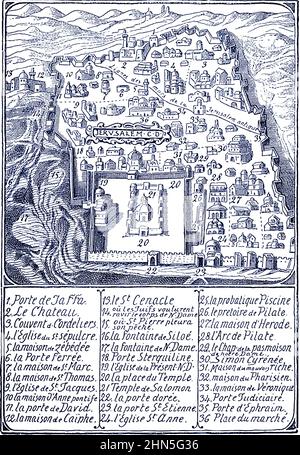 JERUSALEM C.D
1, Porte de Jaffa
2, Le Chateau,
3, Couvent de Cordeliers,
4, l'Eglise du st sépulcre,
5, la moison de Zébédée
6, la Porte Ferrée,
7, la maison de St Marc.
8, la maison de St Thomas.
9, l'Eglise de St Jacques.
10, la maison D'Anne pontife
11, la porte de David.
12, la maison de Caïphe.
13, le St Cenacle
14, où les Juifs voulurent
15, où St Pierre pleura
son péché.
16, la fontaine de Siloé.
17, la fontaine de N. Dame
18, Porte Sterquiline.
19, l'Eglise de la Présent. N.D.
20, la place du Temple.
21, le Temple de Salomon
22, la porte dorée,
23, la porte St Etienne
24, l'Eglise St Anne.
25, la probatique Piscine
26, le pretoire de Pilate.
27, la maison d'Herode.
28, l'Arc de Pilate
29, le Chap. de la pasmoison
de notre Dame
30, Simon Cyrénée.
31, Maison du mauvais riche.
32, maison du Pharisien.
33, la maison de Véronique
34, Porte Judiciaire.
35, Porte d'Ephraïm.
36, Place du marché
alamy
Image ID: 2M5G36
www.alamy.com